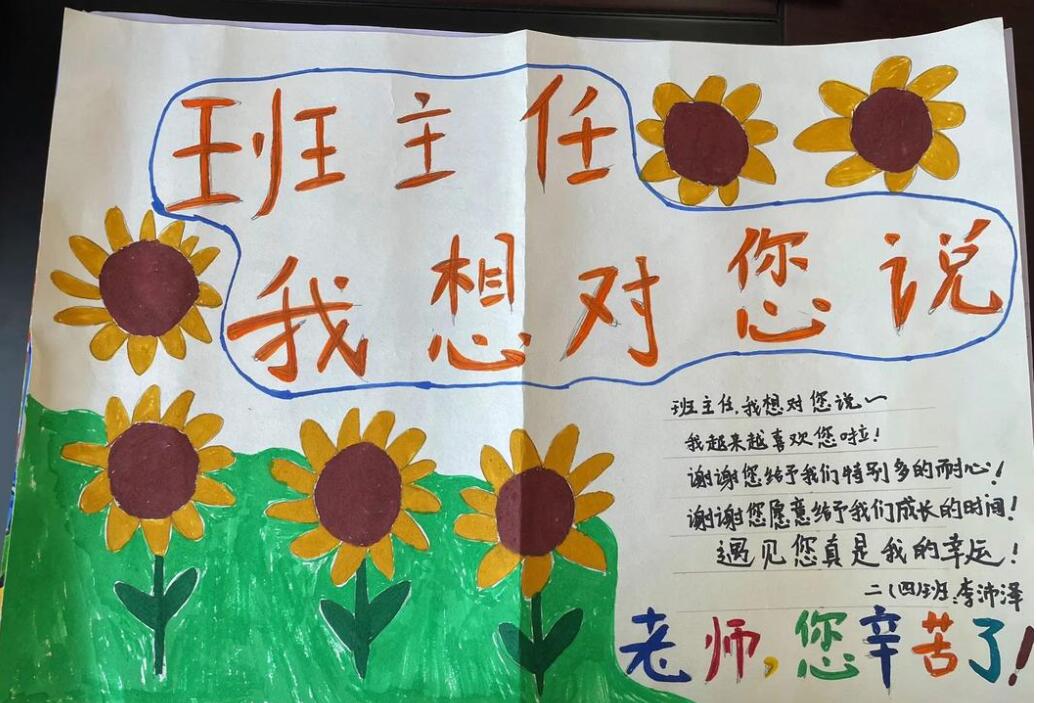 班主任
我想对您说
班主任，我想对您说一
我越来越喜欢您啦！
谢谢您给予我们特别多的耐心！
谢谢您愿意给予我们成长的时间！
遇见您真是我的幸运！
二（四）班：李沛泽
老师，您辛苦了！